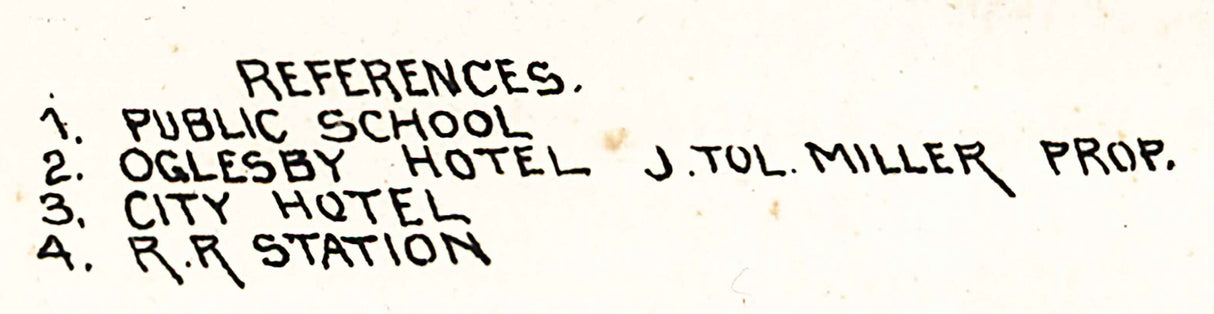 REFERENCES.
1. PUBLIC SCHOOL
2. OGLESBY HOTEL J. TOL. MILLER PROP.
3. CITY HOTEL
4. R.R STATION